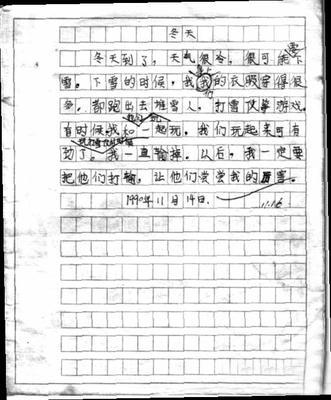 冬天
冬天到了，天气很冷，很可能下
雪。下雪的时候，我我的衣服穿得很
多，都跑出去堆雪人，打雪仗等游戏，
有时候我和一起玩，我们玩起来可有
劲了。我一直输掉。以后，我一定要
把他们打输，让他们尝尝我的厉害。
1990年11月14日.
11.16